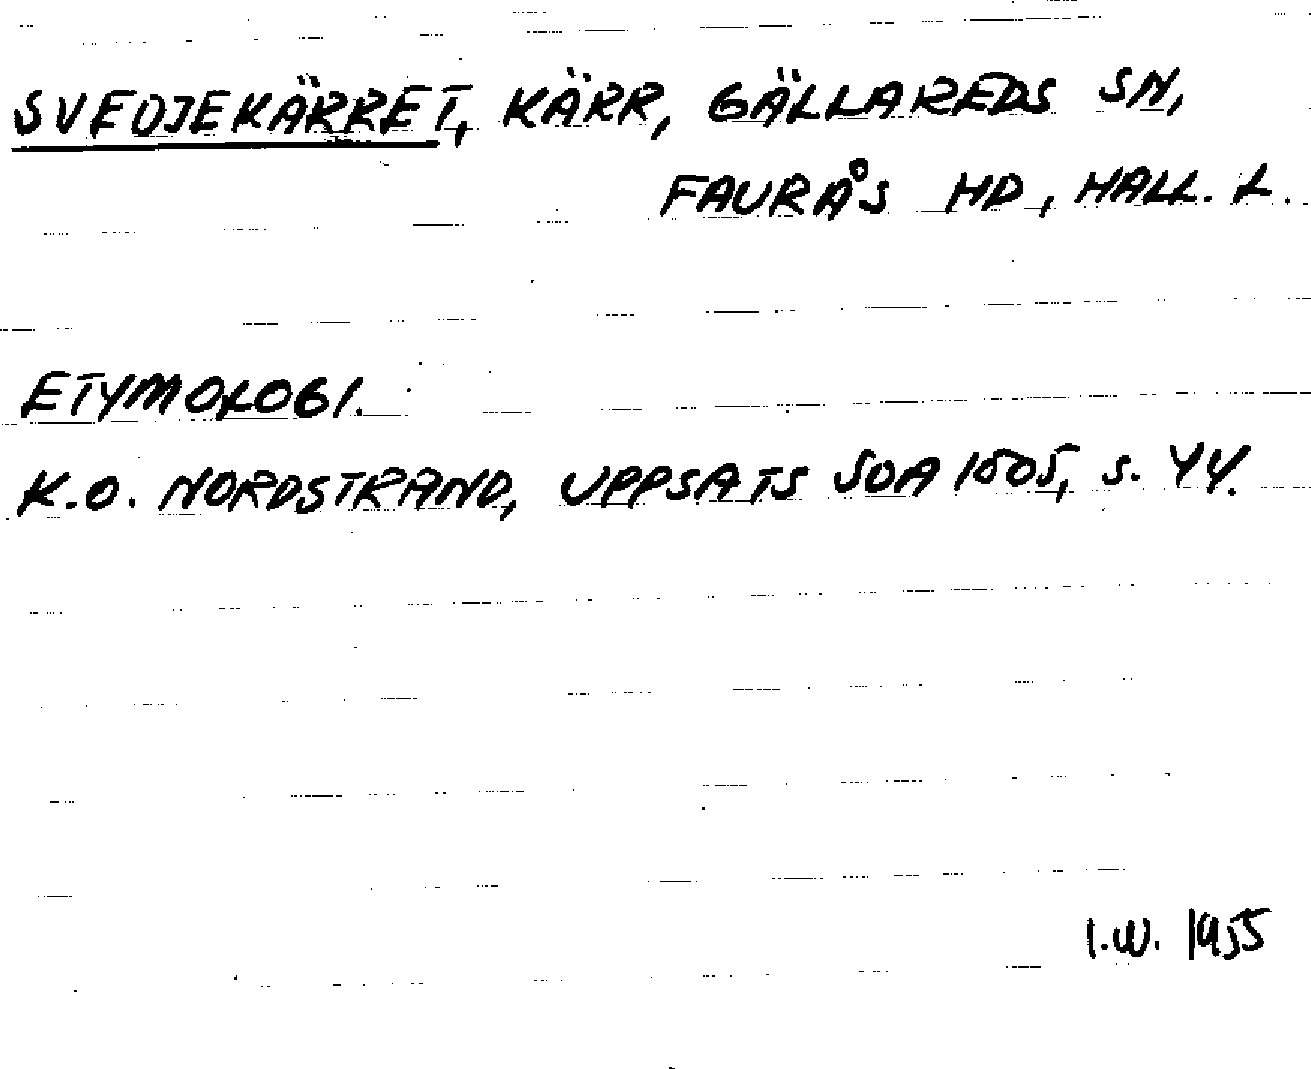 SVEDJEKÄRRET, KÄRR, GÄLLAREDS SN,
FAURÅS HD, HALL. L.
ETYMOLOGI.
K.O. NORDSTRAND, UPPSATS SOA 1505, S. 44.
I.W. 1955